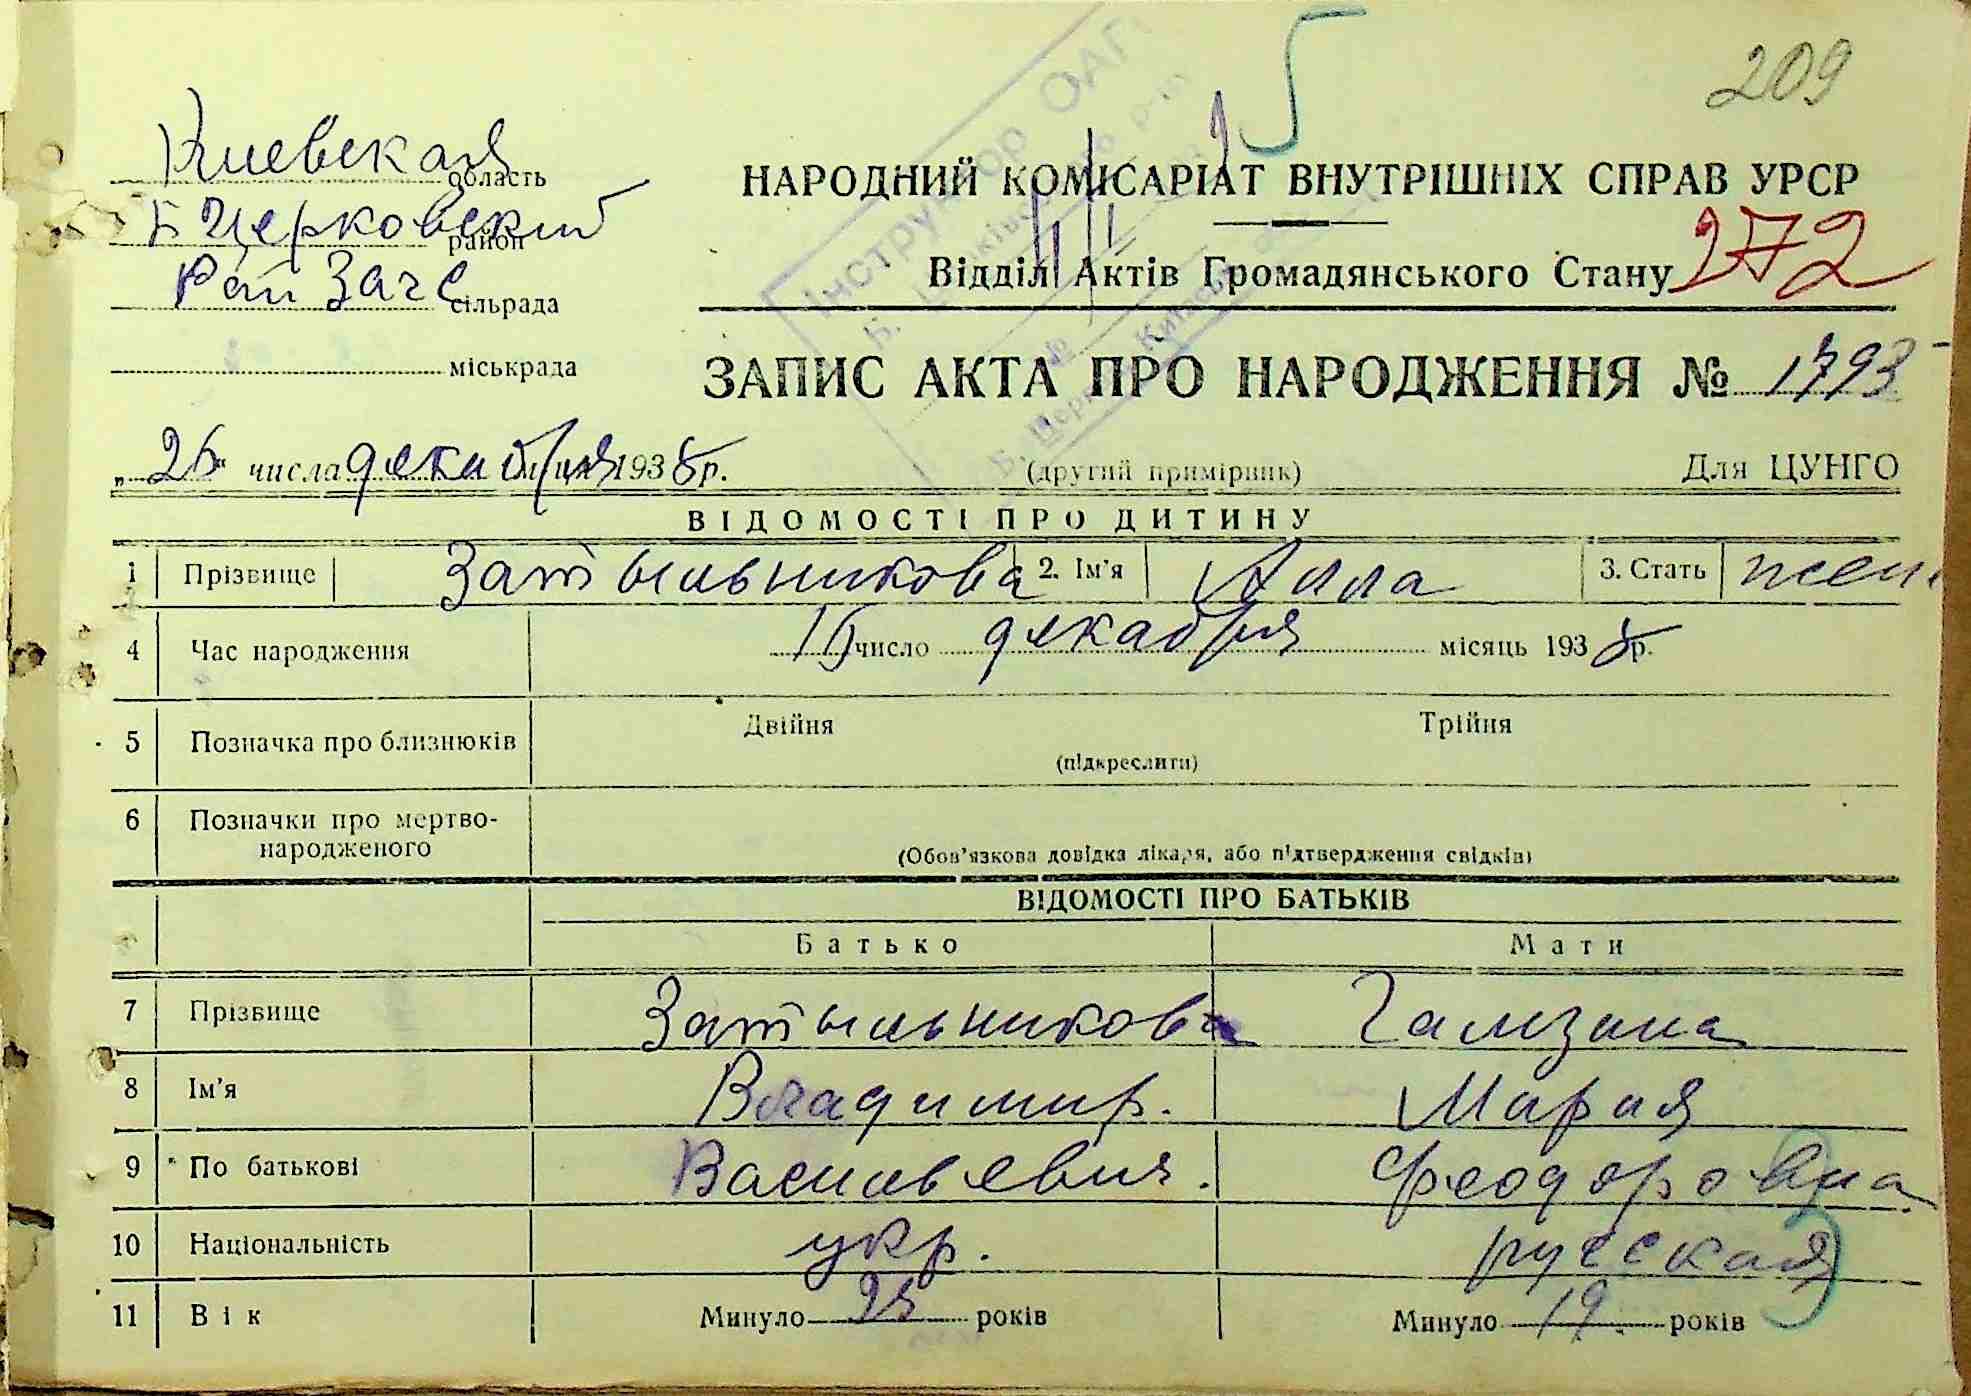 5
209
Киевская область
Б Церковский район
Рай Загс сільрада
міськрада
НАРОДНИЙ КОМІСАРІАТ ВНУТРІШНІХ СПРАВ УРСР
Відділ Актів Громадянського Стану 272
ЗАПИС АКТА ПРО НАРОДЖЕННЯ № 1793
„26“ числа декабря 1938 р. (другий примірник) Для ЦУНГО
ВІДОМОСТІ ПРО ДИТИНУ
1 Прізвище Затыльникова 2. Ім'я Алла 3. Стать жен.
4 Час народження число декабря місяць 1938 р.
5 Позначка про близнюків Двійня Трійня
(підкреслити)
6 Позначки про мертво-
народженого
(Обов'язкова довідка лікаря, або підтвердження свідків)
ВІДОМОСТІ ПРО БАТЬКІВ
Батько Мати
7 Прізвище Затыльникова
8 Ім'я Владимир. Мария
9 По батькові Васильевич. Феодоровна
10 Національність укр. русская
11 Вік Минуло років Минуло 19 років